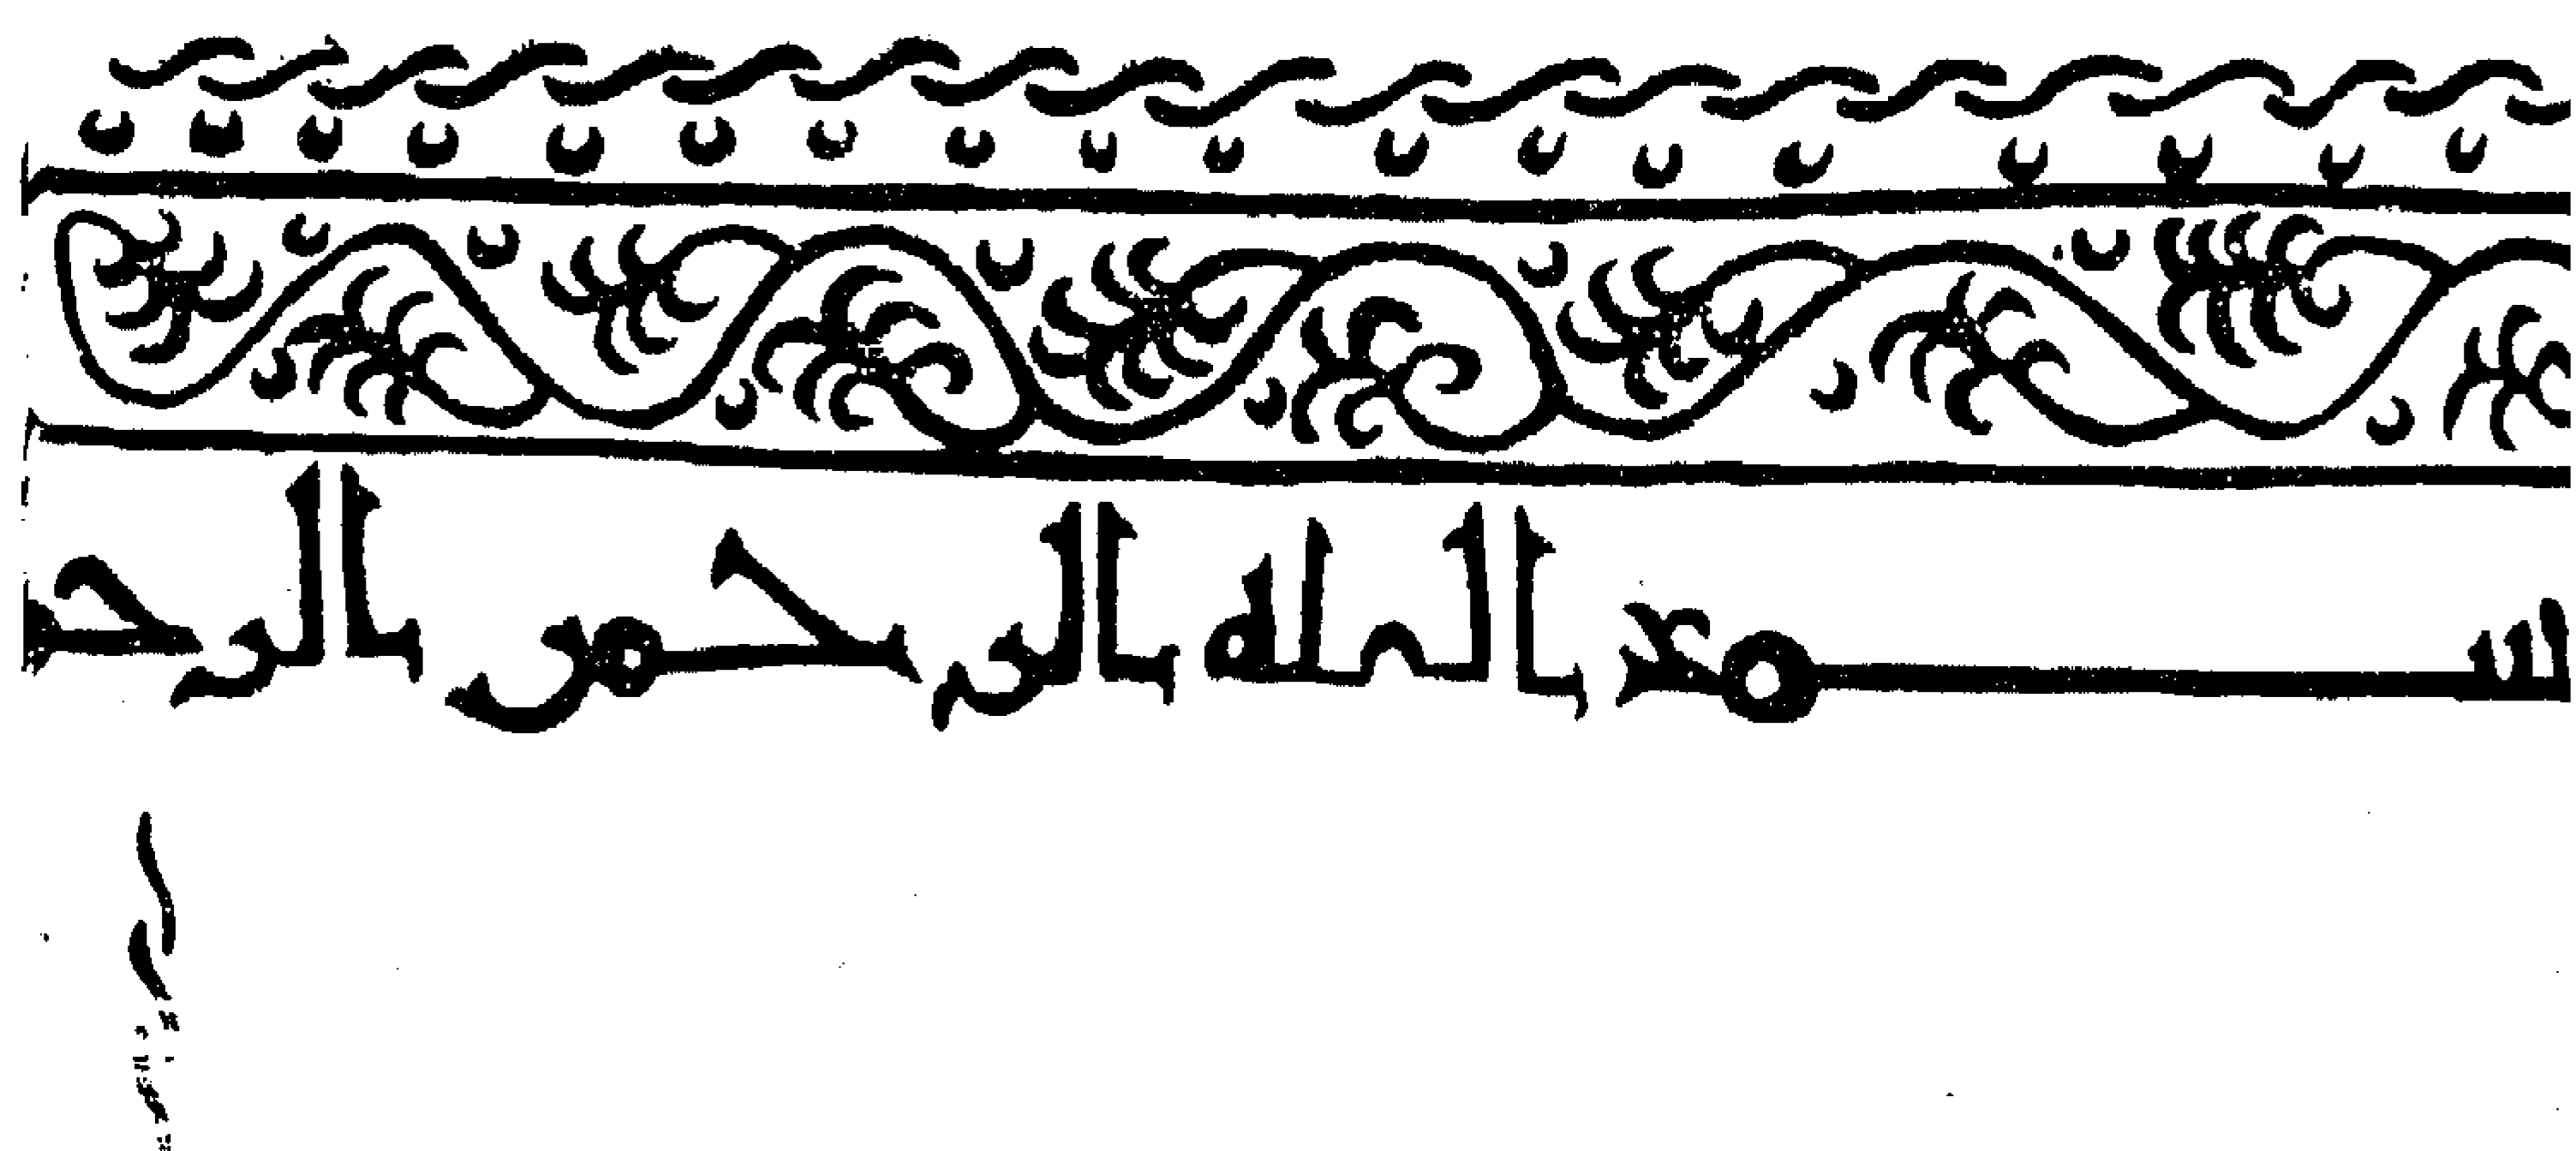 بسم الله الرحمن الرحـ